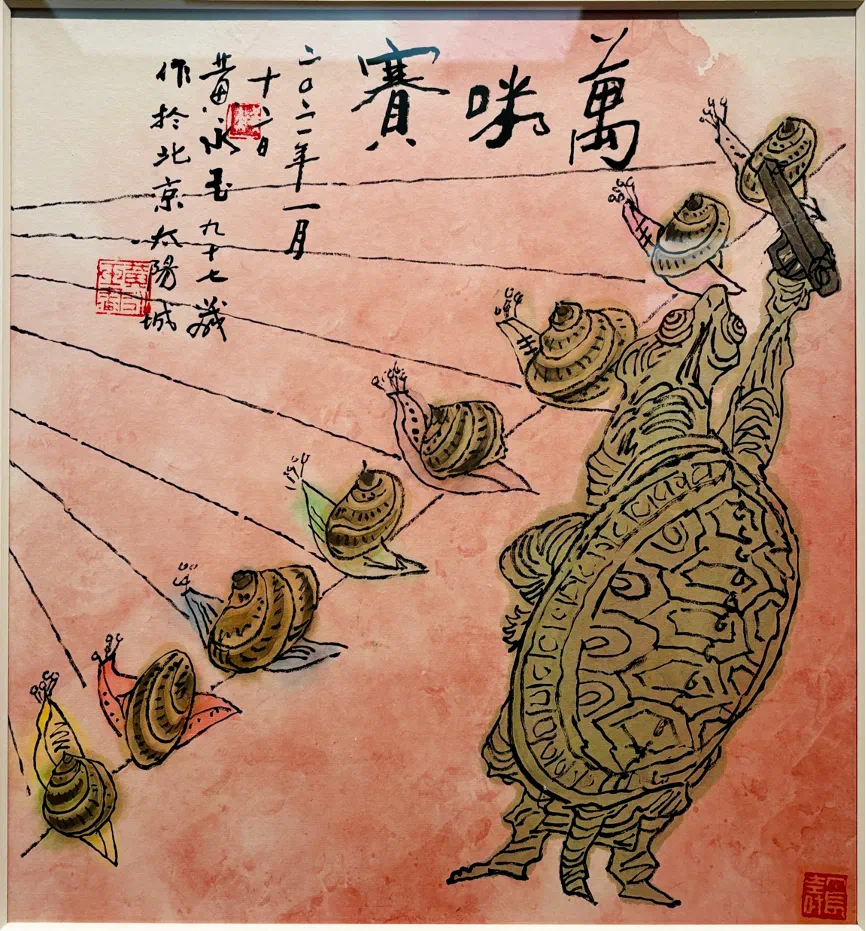 萬咪賽
二〇二一年一月
十日
黄永玉九十七歲
作於北京太陽城